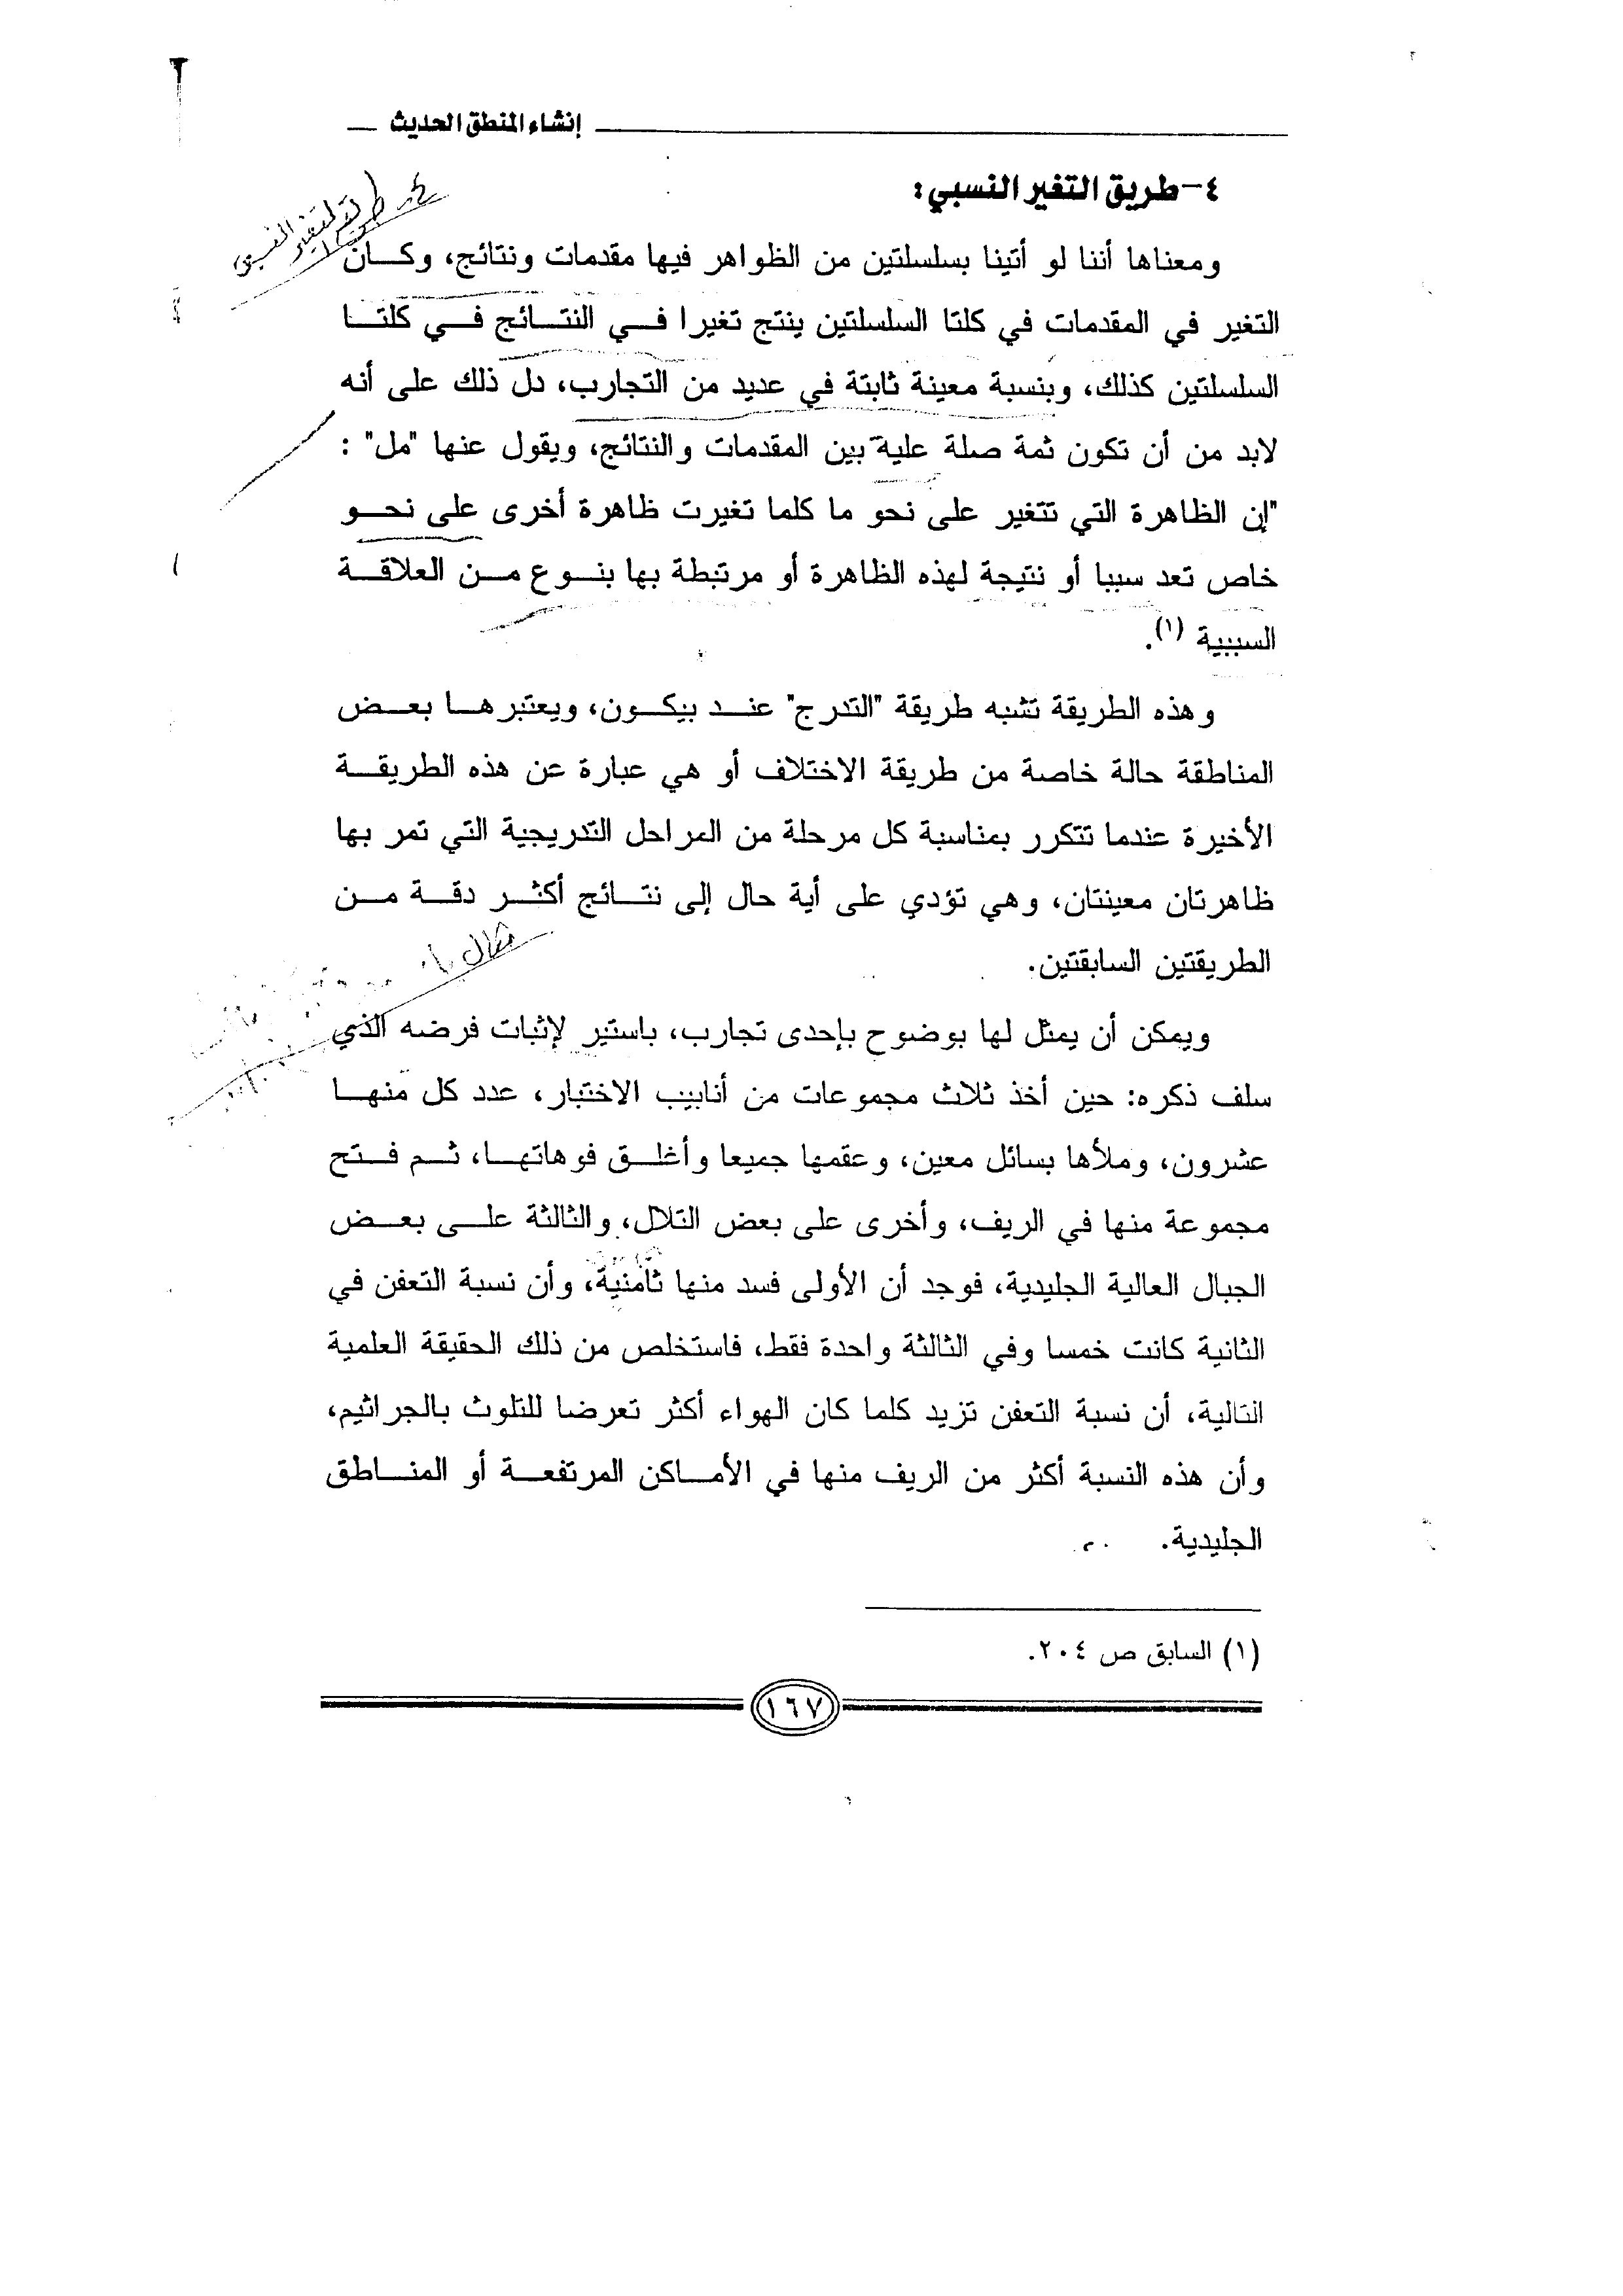 إنشاء المنطق الحديث
٤- طريق التغير النسبي:
طريقة التغير النسبي
ومعناها أننا لو أتينا بسلسلتين من الظواهر فيها مقدمات ونتائج، وكان
التغير في المقدمات في كلتا السلسلتين ينتج تغيرا في النتائج في كلتا
السلسلتين كذلك، وبنسبة معينة ثابتة في عديد من التجارب، دل ذلك على أنه
لابد من أن تكون ثمة صلة علية بين المقدمات والنتائج، ويقول عنها "مل" :
"إن الظاهرة التي تتغير على نحو ما كلما تغيرت ظاهرة أخرى على نحو
خاص تعد سببا أو نتيجة لهذه الظاهرة أو مرتبطة بها بنوع من العلاقة
السببية (١).
وهذه الطريقة تشبه طريقة "التدرج" عند بيكون، ويعتبرها بعض
المناطقة حالة خاصة من طريقة الاختلاف أو هي عبارة عن هذه الطريقة
الأخيرة عندما تتكرر بمناسبة كل مرحلة من المراحل التدريجية التي تمر بها
ظاهرتان معينتان، وهي تؤدي على أية حال إلى نتائج أكثر دقة من
الطريقتين السابقتين.
مثال
ويمكن أن يمثل لها بوضوح بإحدى تجارب، باستير لإثبات فرضه الذي
سلف ذكره: حين أخذ ثلاث مجموعات من أنابيب الاختبار، عدد كل منها
عشرون، وملأها بسائل معين، وعقمها جميعا وأغلق فوهاتها، ثم فتح
مجموعة منها في الريف، وأخرى على بعض التلال، والثالثة على بعض
الجبال العالية الجليدية، فوجد أن الأولى فسد منها ثامنية، وأن نسبة التعفن في
الثانية كانت خمسا وفي الثالثة واحدة فقط، فاستخلص من ذلك الحقيقة العلمية
التالية، أن نسبة التعفن تزيد كلما كان الهواء أكثر تعرضا للتلوث بالجراثيم،
وأن هذه النسبة أكثر من الريف منها في الأماكن المرتفعة أو المناطق
الجليدية.
(١) السابق ص ٢٠٤.
١٦٧